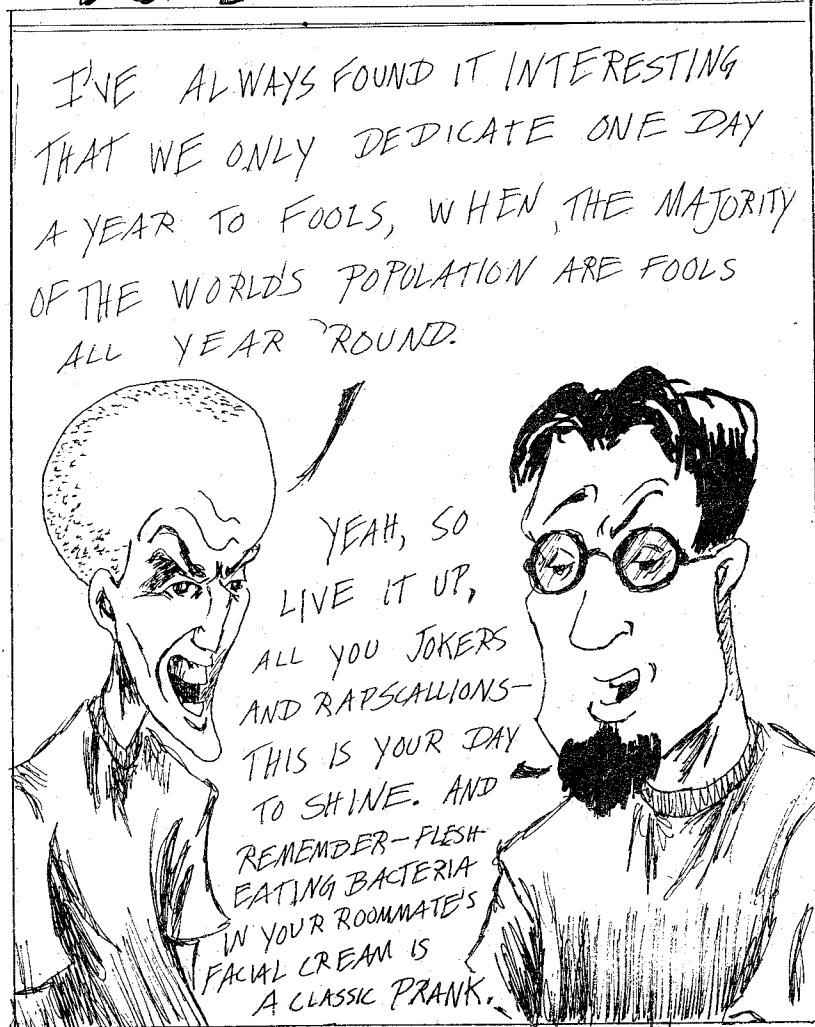 I'VE ALWAYS FOUND IT INTERESTING
THAT WE ONLY DEDICATE ONE DAY
A YEAR TO FOOLS, WHEN THE MAJORITY
OF THE WORLD'S POPULATION ARE FOOLS
ALL YEAR 'ROUND.
YEAH, SO
LIVE IT UP,
ALL YOU JOKERS
AND RAPSCALLIONS—
THIS IS YOUR DAY
TO SHINE. AND
REMEMBER—FLESH-
EATING BACTERIA
IN YOUR ROOMMATE'S
FACIAL CREAM IS
A CLASSIC PRANK.